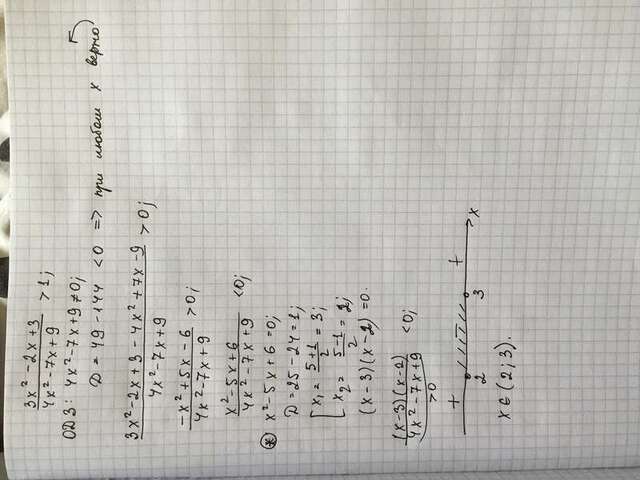 (3x² - 2x + 3)/(4x² - 7x + 9) > 1;
ОДЗ: 4x² - 7x + 9 ≠ 0;
D = 49 - 144 < 0 => при любом x верно)
(3x² - 2x + 3 - 4x² + 7x - 9)/(4x² - 7x + 9) > 0;
(-x² + 5x - 6)/(4x² - 7x + 9) > 0;
(x² - 5x + 6)/(4x² - 7x + 9) < 0;
(*) x² - 5x + 6 = 0;
D = 25 - 24 = 1;
[x₁ = (5+1)/2 = 3;
[x₂ = (5-1)/2 = 2;
(x - 3)(x - 2) = 0.
((x-3)(x-2))/(4x² - 7x + 9) < 0;
> 0
+ - +
2 3 x
x ∈ (2; 3).